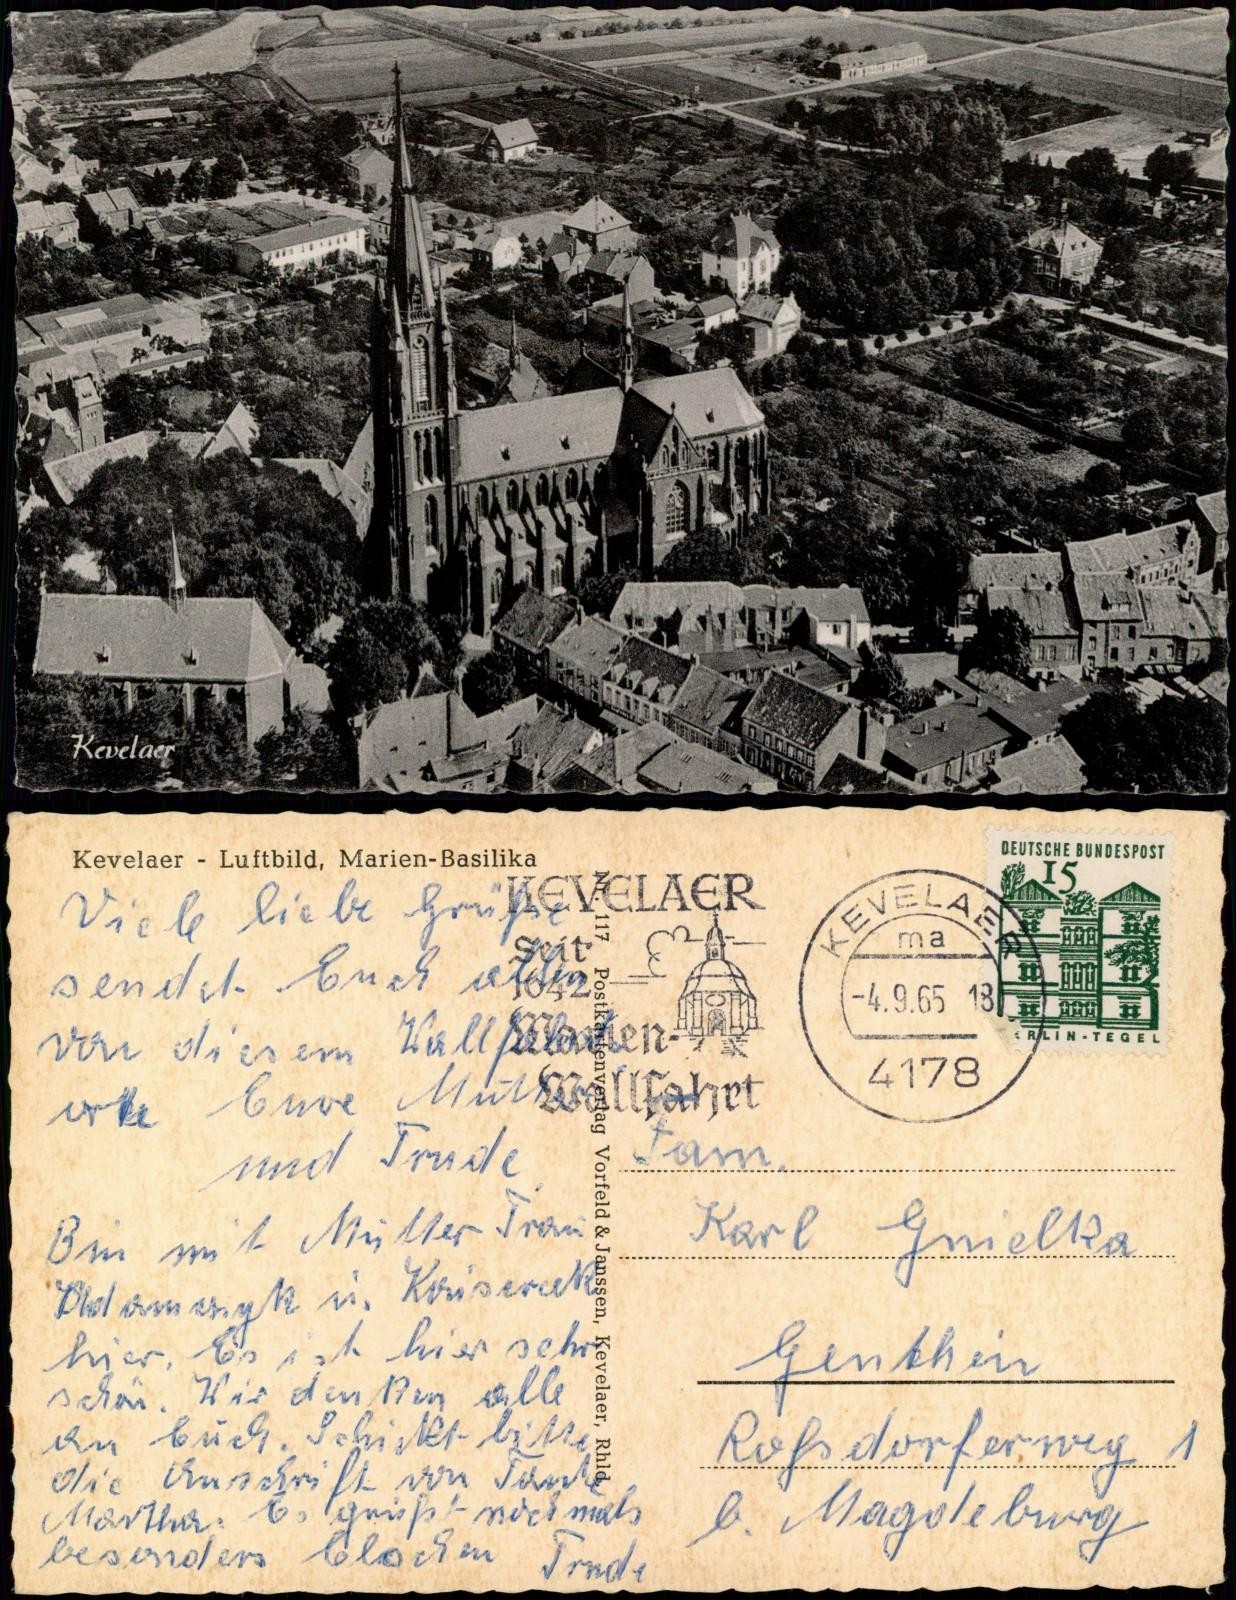 Kevelaer
Kevelaer - Luftbild, Marien-Basilika
Viele liebe Grüße
sendet Euch allen
von diesem Wallfahrts
orte Eure Mutter
und Trude
Bin mit Mutter Frau
u. Kaisereck
hier. Es ist hier sehr
schön. Wir denken alle
an Euch. Schickt bitte
die Anschrift von Tante
Martha. Es grüßt nochmals
besonders Trude
Nr. 117 Postkartenverlag Vorfeld & Janssen, Kevelaer, Rhld.
KEVELAER
Seit
1642
Marien-
Wallfahrt
KEVELAER
ma
-4.9.65 18
4178
DEUTSCHE BUNDESPOST
15
BERLIN-TEGEL
Fam.
Karl Gnielka
Genthin
Roßdorferweg 1
b. Magdeburg